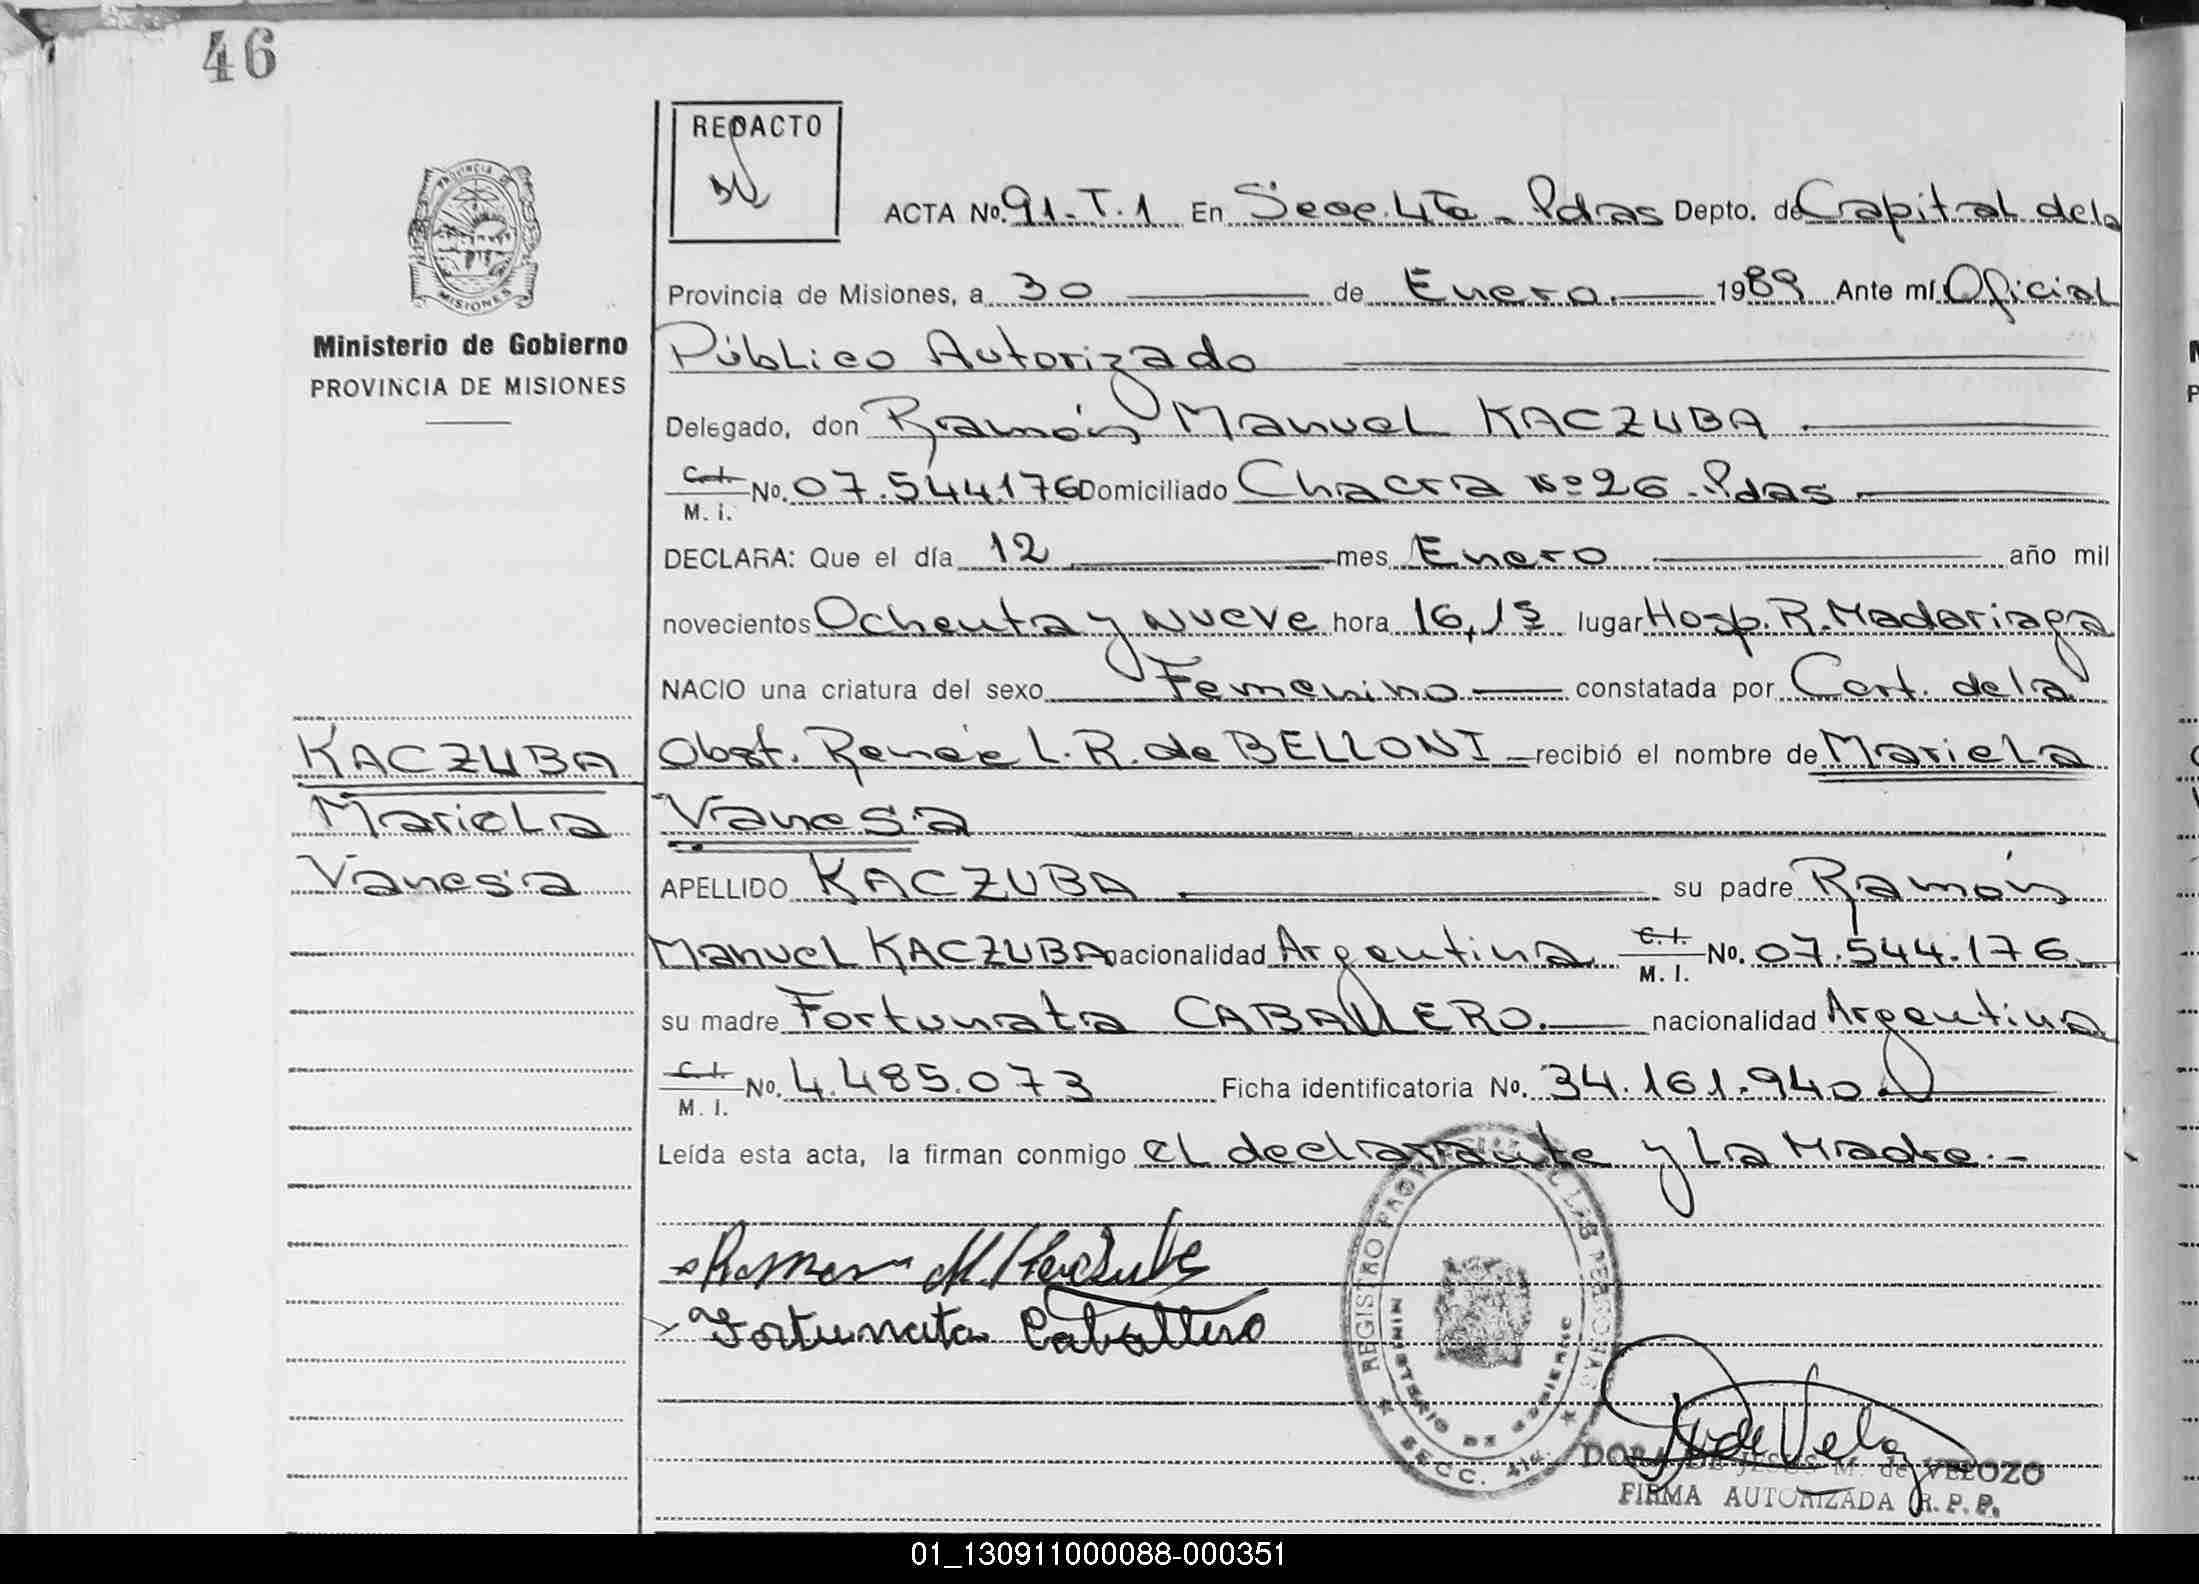 46
REDACTO
PROVINCIA DE
MISIONES
Ministerio de Gobierno
PROVINCIA DE MISIONES
KACZUBA
Mariela
Vanesa
ACTA No. 91-T.1 En Secc. 4ta - Pdas Depto. de Capital de la
Provincia de Misiones, a 30 de Enero 1989 Ante mí Oficial
Público Autorizado
Delegado, don Ramón Manuel KACZUBA
C.I. M. i. No. 07.544.176 Domiciliado Chacra Nº 26 - Pdas
DECLARA: Que el día 12 mes Enero año mil
novecientos Ochenta y Nueve hora 16,15 lugar Hosp. R. Madariaga
NACIO una criatura del sexo Femenino constatada por Cert. de la
Obst. Renée L. R. de BELLONI recibió el nombre de Mariela
Vanesa
APELLIDO KACZUBA su padre Ramón
Manuel KACZUBA nacionalidad Argentina C.I. M. I. No. 07.544.176
su madre Fortunata CABALLERO. nacionalidad Argentina
C.I. M. I. No. 4.485.073 Ficha identificatoria No. 34.161.940
Leída esta acta, la firman conmigo el declarante y la Madre.-
Ramon M. Kaczuba
Fortunata Caballero
REGISTRO PROV. DE LAS PERSONAS
MINISTERIO DE GOBIERNO
SECC. 4ta.
DORA DE JESUS M. de VELOZO
FIRMA AUTORIZADA R. P. P.
01_130911000088-000351